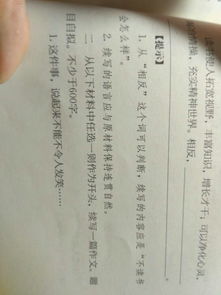 使人拓宽视野，丰富知识，增长才干，可以净化心灵，
情操，充实精神世界。相反，
【提示】
1. 从“相反”这个词可以判断，续写的内容应是“不读书
会怎么样”。
2. 续写的语言应与原材料保持连贯自然。
二、从以下材料中任选一则作为开头，续写一篇作文，题
目自拟。不少于600字。
1. 这件事，说起来不能不令人发笑……